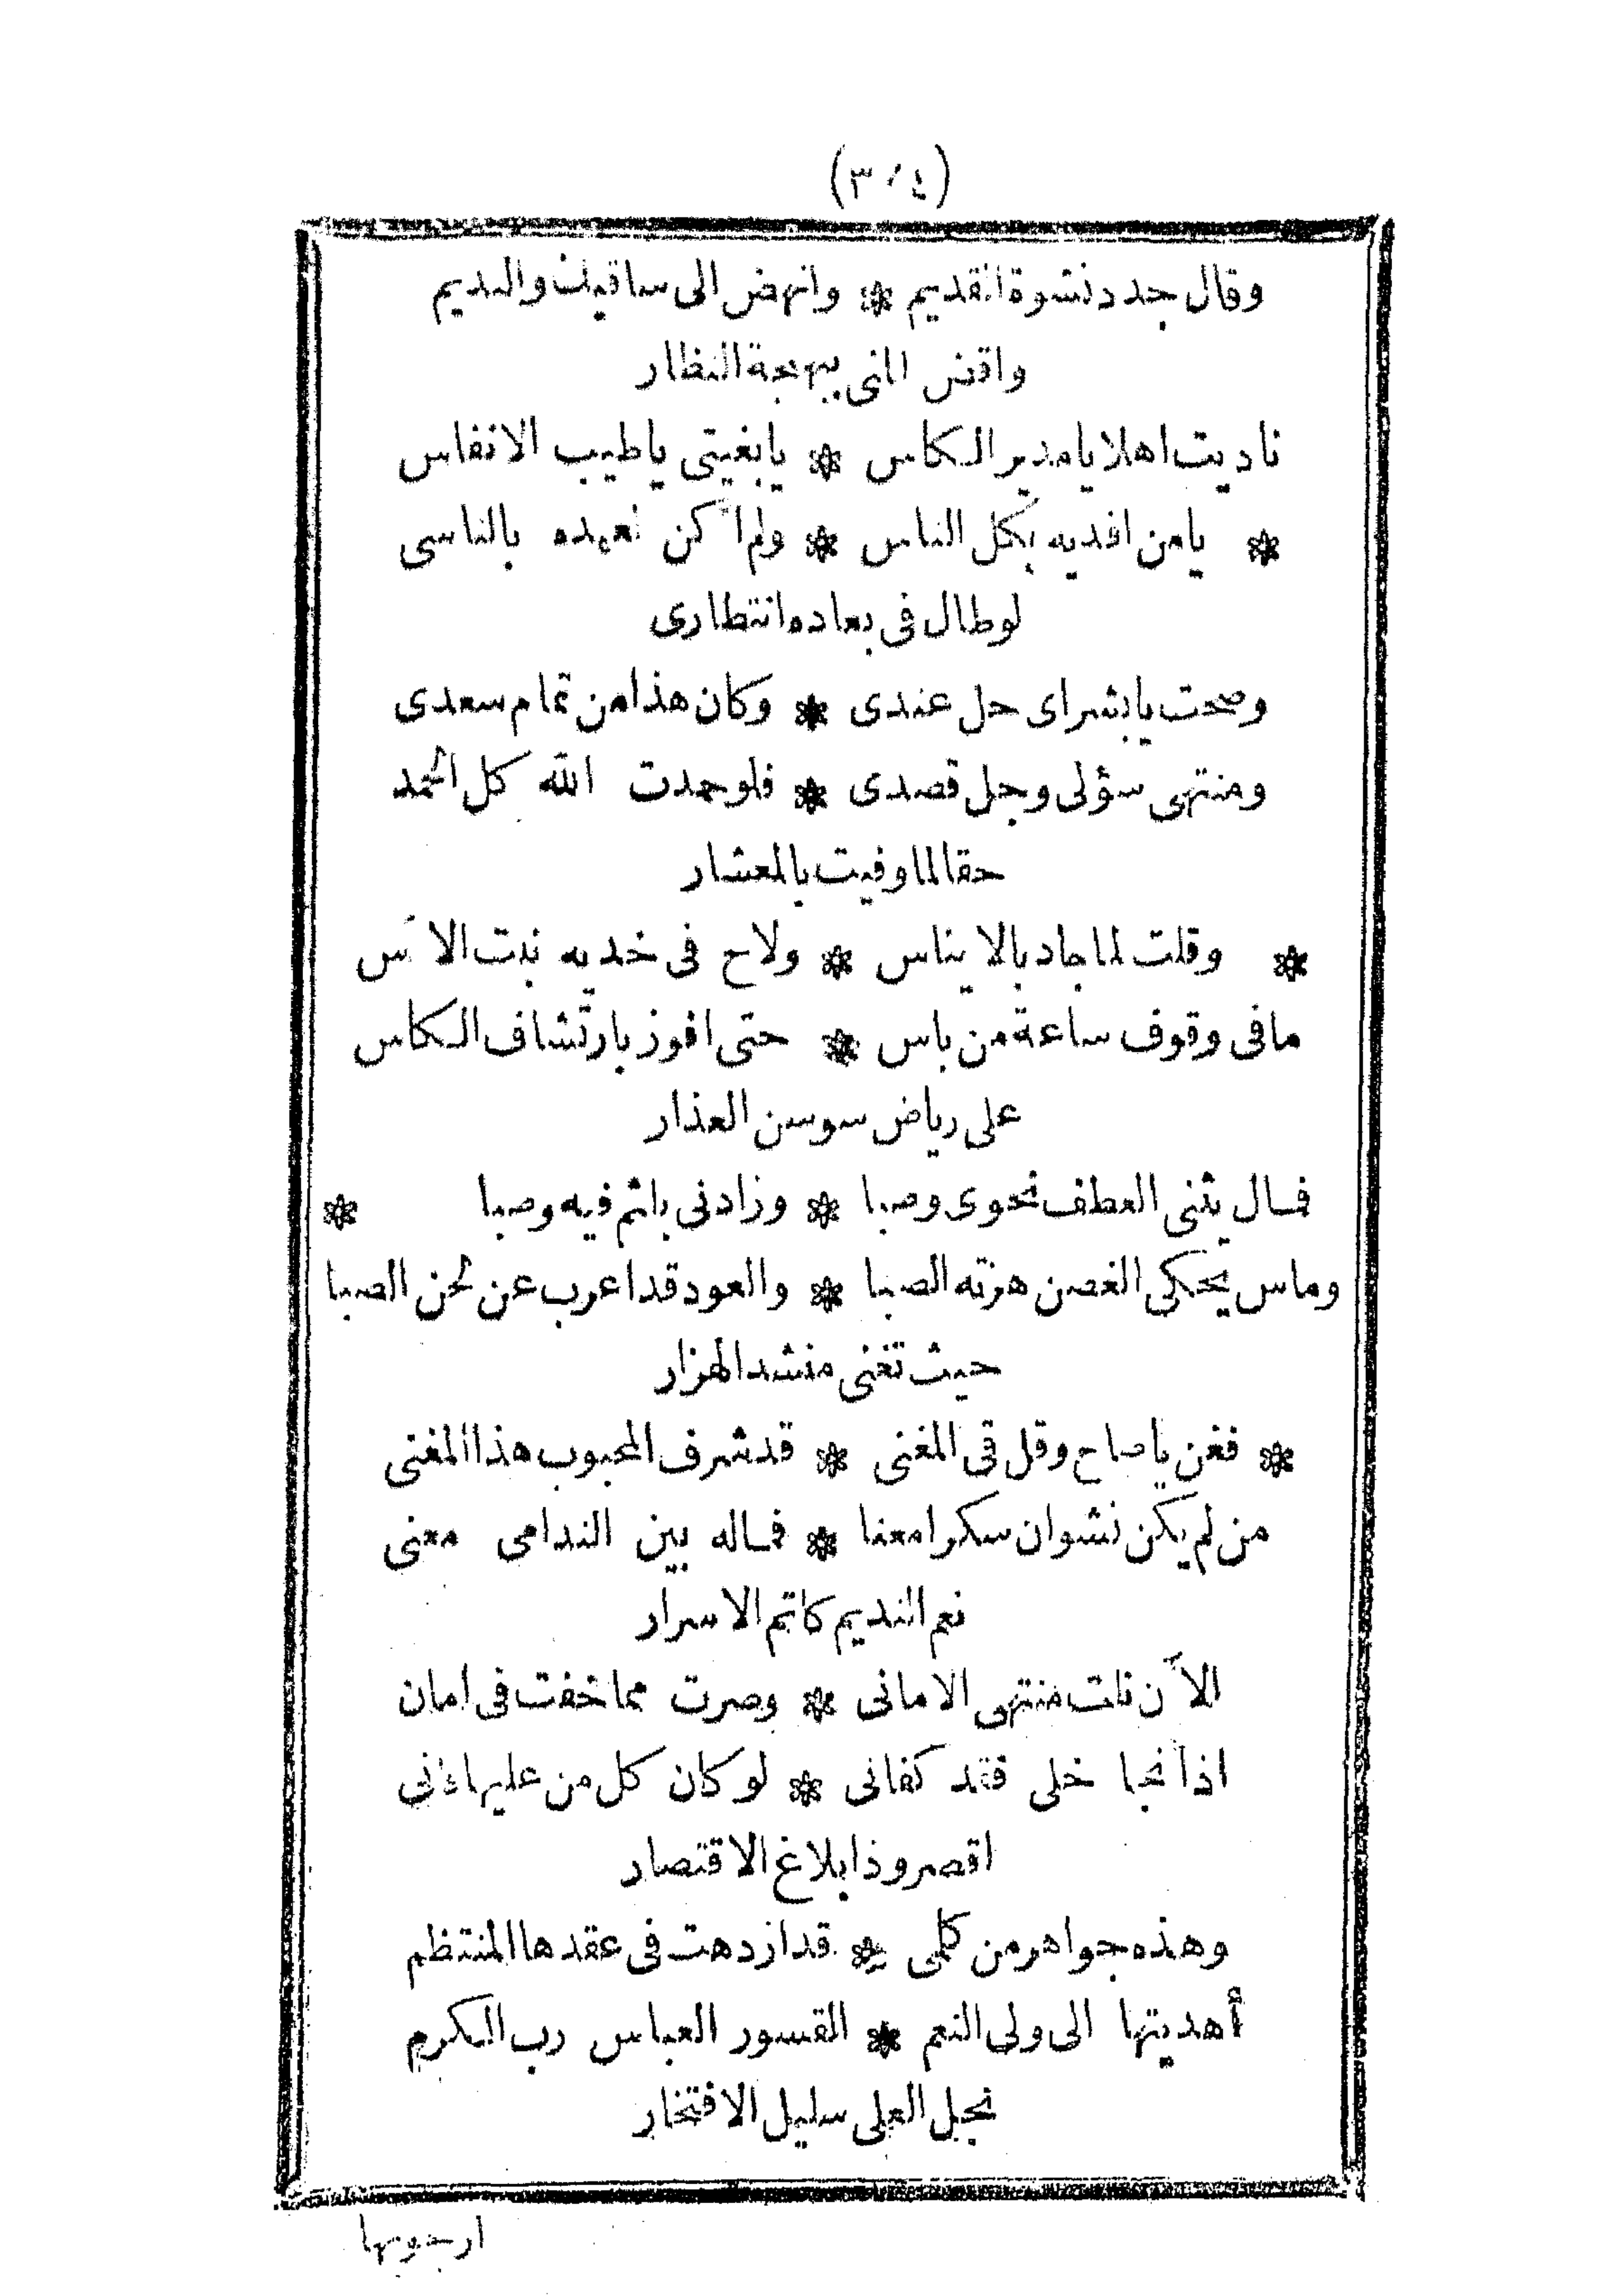 (٣٠٤)
وقال جدد نشوة القديم * وانهض الى ساقيك والنديم
واقض المنى ببهجة النظار
ناديت اهلا يا مدير الكاس * يا بغيتى يا طيب الانفاس
* يا من افديه بكل الناس * ولم أكن لعهده بالناسى
لو طال فى بعاده انتظارى
وصحت يا بشراى حل عندى * وكان هذا من تمام سعدى
ومنتهى سؤلى وجل قصدى * فلو حمدت الله كل الحمد
حقا لما وفيت بالمعشار
* وقلت لما جاد بالايناس * ولاح فى خديه نبت الآس
ما فى وقوف ساعة من باس * حتى افوز بارتشاف الكاس
على رياض سوسن العذار
فمال يثنى العطف نحوى وصبا * وزادنى بلثم فيه وصبا *
وماس يحكى الغصن هزته الصبا * والعود قد اعرب عن لحن الصبا
حيث تغنى منشد الهزار
* فغن يا صاح وقل فى المغنى * قد شرف المحبوب هذا المغنى
من لم يكن نشوان سكرا معنا * فماله بين الندامى معنى
نعم النديم كاتم الاسرار
الآن نلت منتهى الامانى * وصرت مما خفت فى امان
اذا نجا خلى فقد كفانى * لو كان كل من عليها فانى
اقصر وذا بلاغ الاقتصاد
وهذه جواهر من كلمى * قد ازدهت فى عقدها المنتظم
أهديتها الى ولى النعم * القسور العباس رب الكرم
نجل العلى سليل الافتخار
ارجوبها